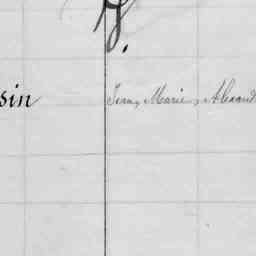 sin Jean, Marie, Alexand